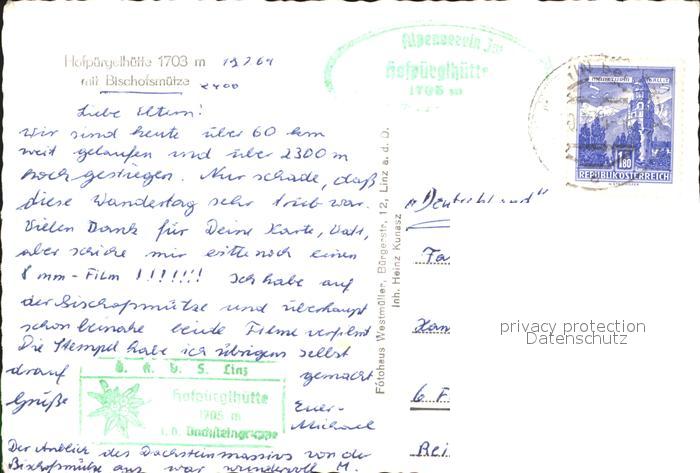 Hofpürgelhütte 1703 m 19.7.64
mit Bischofsmütze 2400
Liebe Eltern!
Wir sind heute über 60 km
weit gelaufen und über 2300 m
hoch gestiegen. Nur schade, daß
diese Wandertag sehr trüb war.
Vielen Dank für Deine Karte, Vati,
aber schicke mir bitte noch einen
8 mm-Film !!!!!!! Ich habe auf
der Bischofsmütze und überhaupt
schon beinahe beide Filme verfilmt
Die Stempel habe ich übrigens selbst
drauf gemacht
Grüße Euer
Michael
Der Anblick des Dachsteinmassivs von der
Bischofsmütze aus war wundervoll M.
Ö. A. V. S. Linz
Hofpürglhütte
1705 m
Dachsteingruppe
Alpenverein
Hofpürglhütte
1705 m
Fotohaus Westmüller, Bürgerstr. 12, Linz a. d. D.
Inh. Heinz Kunasz
1.80
REPUBLIK ÖSTERREICH
"Deutschland"
Fa
Ham
6 F
Rei
privacy protection
Datenschutz